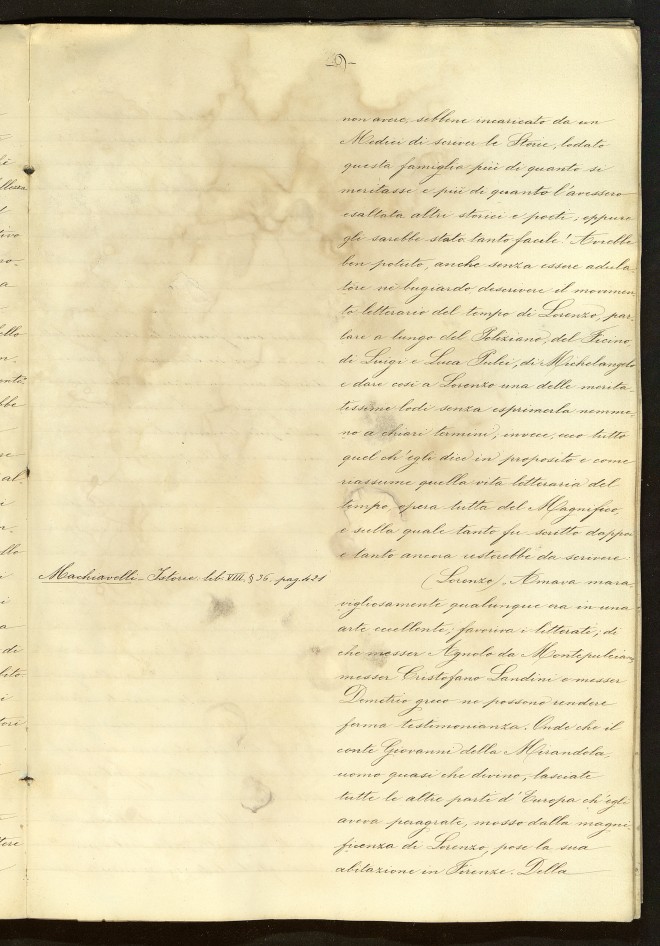 non avere, sebbene incaricato da un
Medici di scriver le Storie, lodato
questa famiglia più di quanto si
meritasse e più di quanto l'avessero
esaltata altri storici e poeti, eppure
gli sarebbe stato tanto facile! Avrebbe
ben potuto, anche senza essere adula-
tore nè bugiardo descrivere il movimen-
to letterario del tempo di Lorenzo, par-
lare a lungo del Poliziano, del Ficino
di Luigi e Luca Pulci, di Michelangelo
e dare così a Lorenzo una delle merita-
tissime lodi senza esprimerla nemme-
no a chiari termini, invece, ecco tutto
quel ch'egli dice in proposito e come
reassume quella vita letteraria del
tempo, opera tutta del Magnifico,
e sulla quale tanto fu scritto dappoi
e tanto ancora resterebbe da scrivere:
Machiavelli - Istorie. lib. VIII. § 36. pag. 421
(Lorenzo). Amava mara-
vigliosamente qualunque era in una
arte eccellente; favoriva i litterati; di
che messer Agnolo da Montepulciano,
messer Cristofano Landini e messer
Demetrio greco ne possono rendere
ferma testimonianza. Onde che il
conte Giovanni della Mirandola,
uomo quasi che divino, lasciate
tutte le altre parti d'Europa ch'egli
aveva peragrate, mosso dalla magni-
ficenza di Lorenzo, pose la sua
abitazione in Firenze. Della